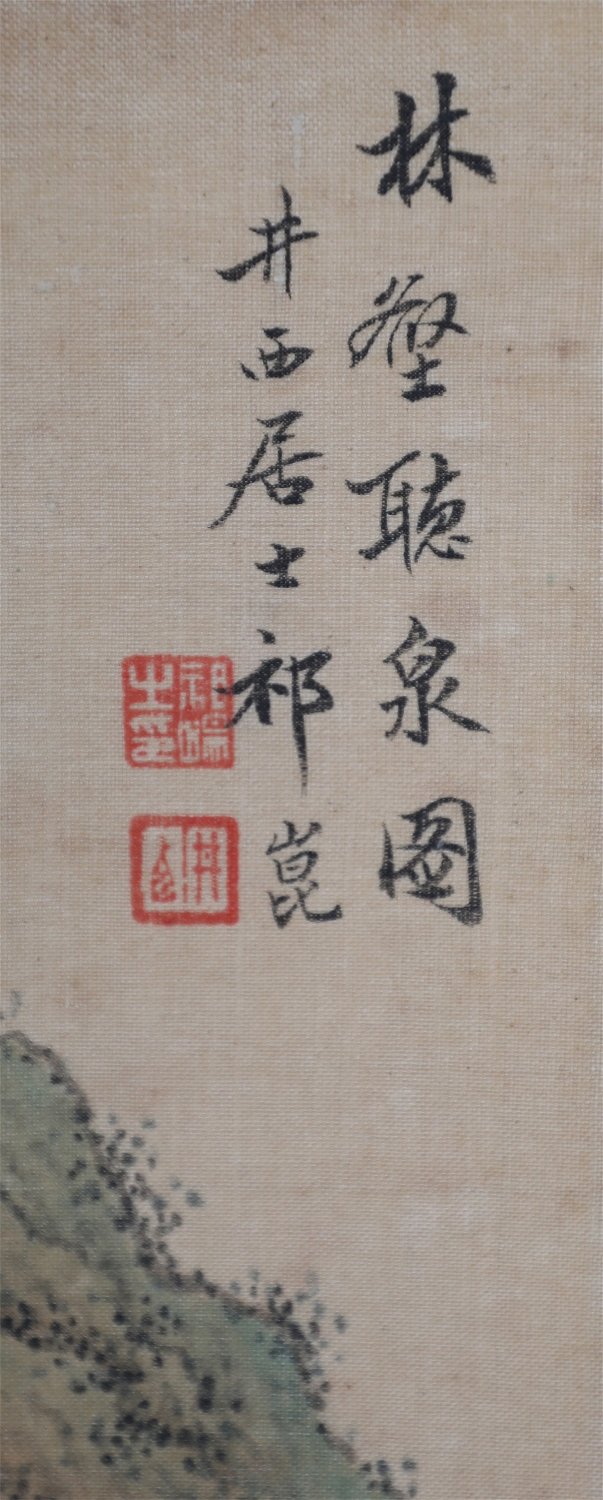 林壑聽泉圖
井西居士祁崑
祁崑之印
井西